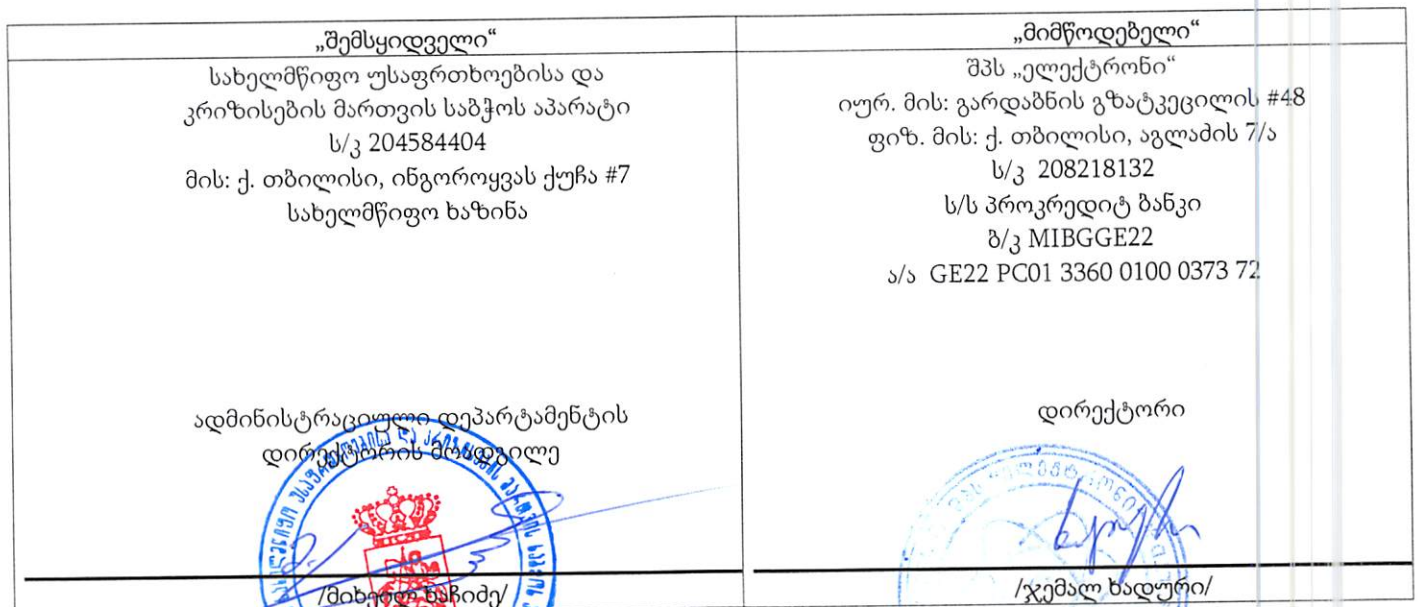 „შემსყიდველი“
სახელმწიფო უსაფრთხოებისა და
კრიზისების მართვის საბჭოს აპარატი
ს/კ 204584404
მის: ქ. თბილისი, ინგოროყვას ქუჩა #7
სახელმწიფო ხაზინა
ადმინისტრაციული დეპარტამენტის
დირექტორის მოადგილე
„მიმწოდებელი“
შპს „ელექტრონი“
იურ. მის: გარდაბნის გზატკეცილის #48
ფიზ. მის: ქ. თბილისი, აგლაძის 7/ა
ს/კ 208218132
ს/ს პროკრედიტ ბანკი
ბ/კ MIBGGE22
ა/ა GE22 PC01 3360 0100 0373 72
დირექტორი
/ჯემალ ხადური/